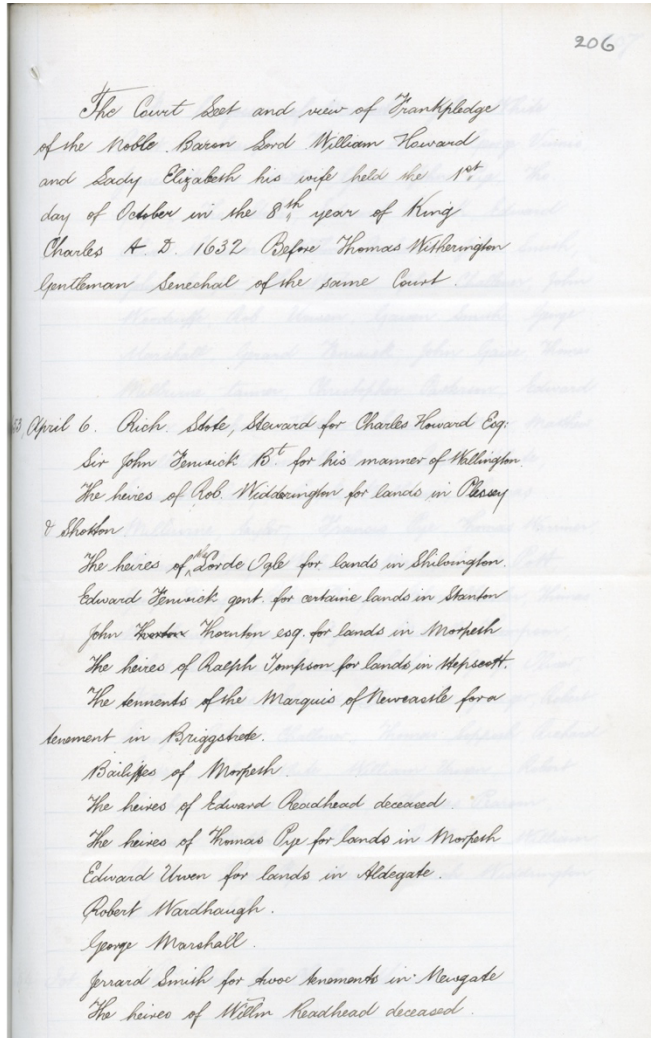 206
The Court Leet and view of Frankpledge
of the Noble Baron Lord William Howard
and Lady Elizabeth his wife held the 1st
day of October in the 8th year of King
Charles A. D. 1632 Before Thomas Witherington
Gentleman Senechal of the same Court
53 April 6. Rich. Stote, Steward for Charles Howard Esq:
Sir John Fenwick Bt. for his manner of Wallington.
The heires of Rob. Widderington for lands in Plessey
& Shotton
The heires of the Lorde Ogle for lands in Shilvington.
Edward Fenwick gent. for certaine lands in Stanton
John Thornton esq. for lands in Morpeth
The heires of Raeph Tompson for lands in Hepscott.
The tennents of the Marquis of Newcastle for a
tenement in Briggstrete.
Bailiffes of Morpeth.
The heires of Edward Readhead deceased
The heires of Thomas Pye for lands in Morpeth
Edward Urwen for lands in Aldegate.
Robert Wardhaugh.
George Marshall.
Jerrard Smith for twoe tenements in Newgate
The heires of Willm Readhead deceased.